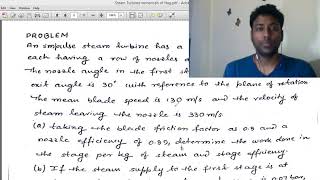 Steam Turbines numericals of Nag.pdf - Adobe
PROBLEM
An impulse steam turbine has a
each having a row of nozzles a
The nozzle angle in the first st
exit angle is 30° (with reference to the plane of rotation
The mean blade speed is 130 m/s and the velocity of
steam leaving the nozzle is 330 m/s
(a) taking the blade friction factor as 0.9 and a
nozzle efficiency of 0.85, determine the work done in
the stage per kg of steam and stage efficiency.
(b) If the steam supply to the first stage is at